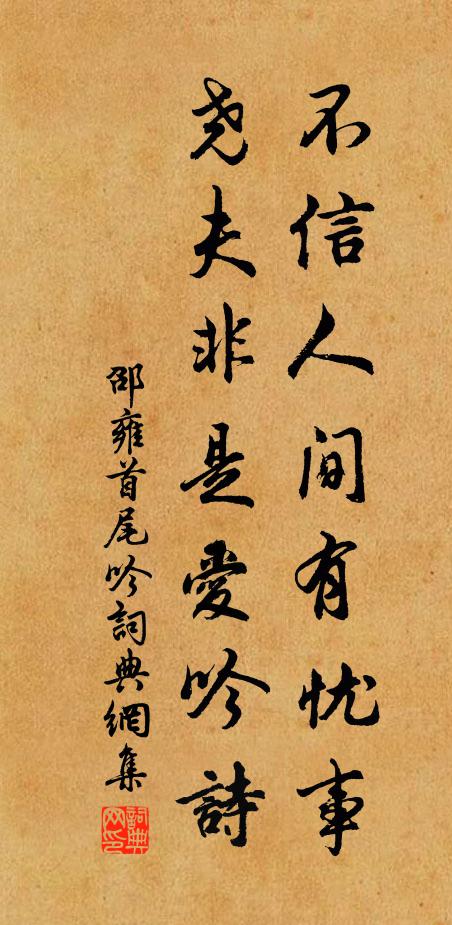 不信人间有忧事
尧夫非是爱吟詩
邵雍首尾吟詞典網集
詞典网印